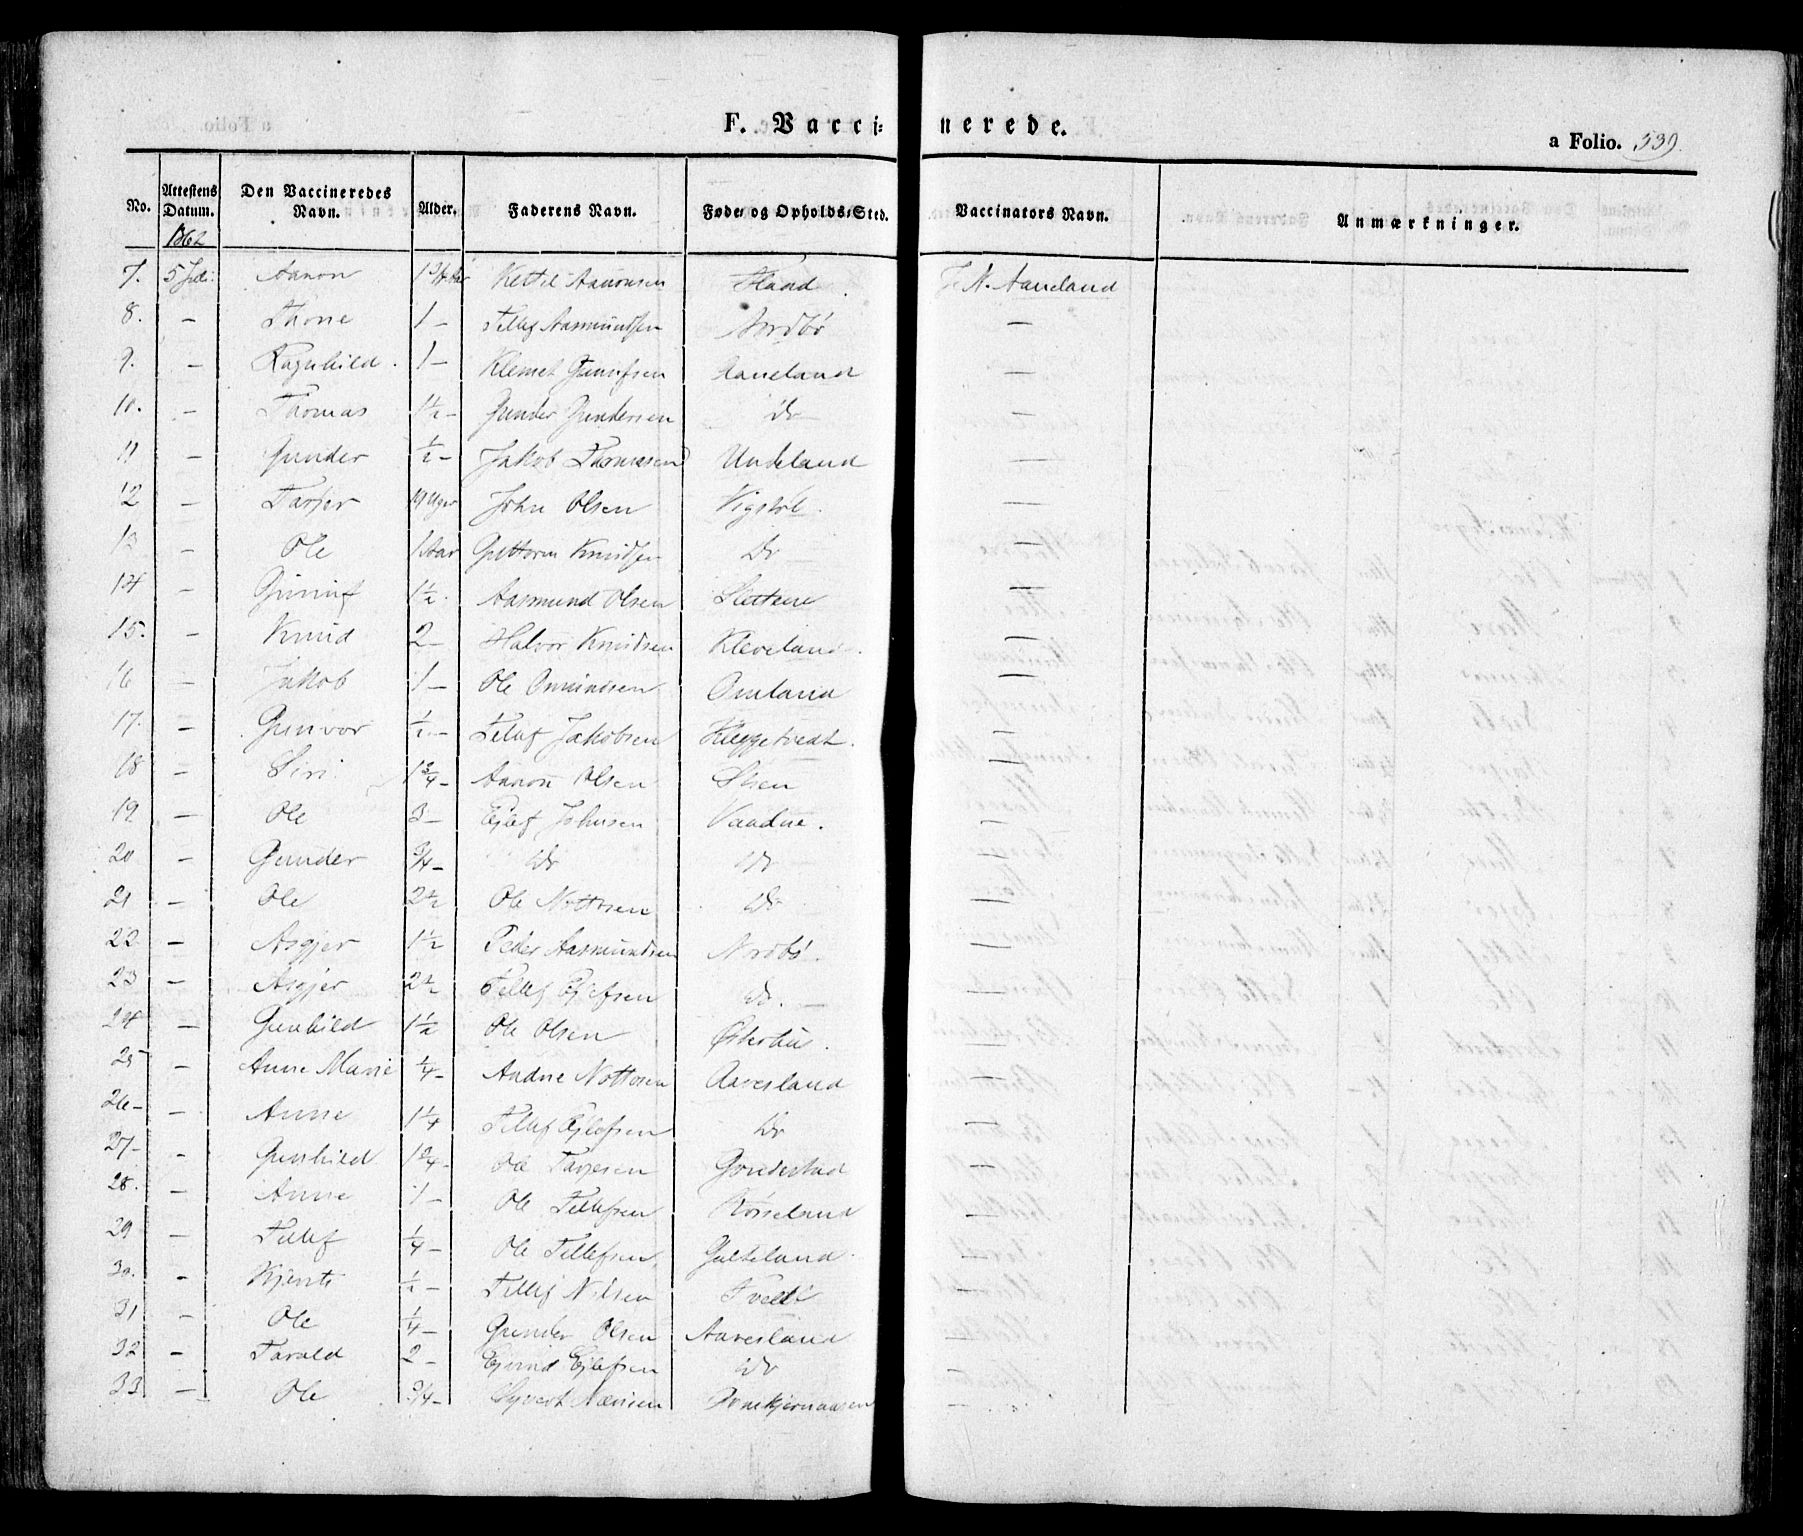 F. Vacci=nerede.
a Folio. 539.
No. Attestens Datum. Den Vaccineredes Navn. Alder. Faderens Navn. Føde- og Opholds-Sted. Vaccinators Navn. Anmærkninger.
1862
7. 5 Juli Aanon 1 3/4 Aar Kettil Aanonsen Haad J. N. Aaneland
8. – Thone 1 – Tellef Aasmundsen Nordbø —
9. – Ragnhild 1 – Klemet Gunufsen Aaneland —
10. – Thomas 1 1/2 – Gunder Gundersen Do —
11 – Gunder 1/2 – Jakob Thomasen Undeland —
12 – Tarjer 19 Uger John Olsen Vigstøl —
13 – Ole 1 Aar Guttorm Knudsen Do —
14 – Gunuf 1 1/2 Aasmund Olsen Slettene —
15. – Knud 2 – Halvor Knudsen Kleveland —
16 – Jakob 1 – Ole Omundsen Omland —
17. – Gunvor 1/2 – Tellef Jakobsen Heggetvedt —
18 – Siri 1 3/4 – Aanon Olsen —
19 – Ole 3 – Ejlef Johnsen Vaadne —
20 – Gunder 3/4 – Do Do —
21 – Ole 2 1/2 Ole Nottosen Do —
22 – Asgjer 1 1/2 Peder Aasmundsen Nordbø —
23 – Asgjer 2 1/2 Tellef Ejlefsen Do —
24 – Gunhild 1 1/2 Ole Olsen —
25 – Anne Marie 1/4 – Nottosen Aavesland —
26 – Anne 1 1/4 Tellef Ejlefsen Do —
27 – Gunhild 1 3/4 – Ole Tarjesen —
28. – Anne 1 – Ole Tellefsen —
29 – Tellef 1/4 – Ole Tellefsen Galteland —
30. – 1/2 – Tellef Nilsen Tvedt —
31 – Ole 1/4 – Gunder Olsen Aavesland —
32 – Tarald 2 – Ejvind Ejlefsen Do —
33 – Ole 3/4 – Syvert —